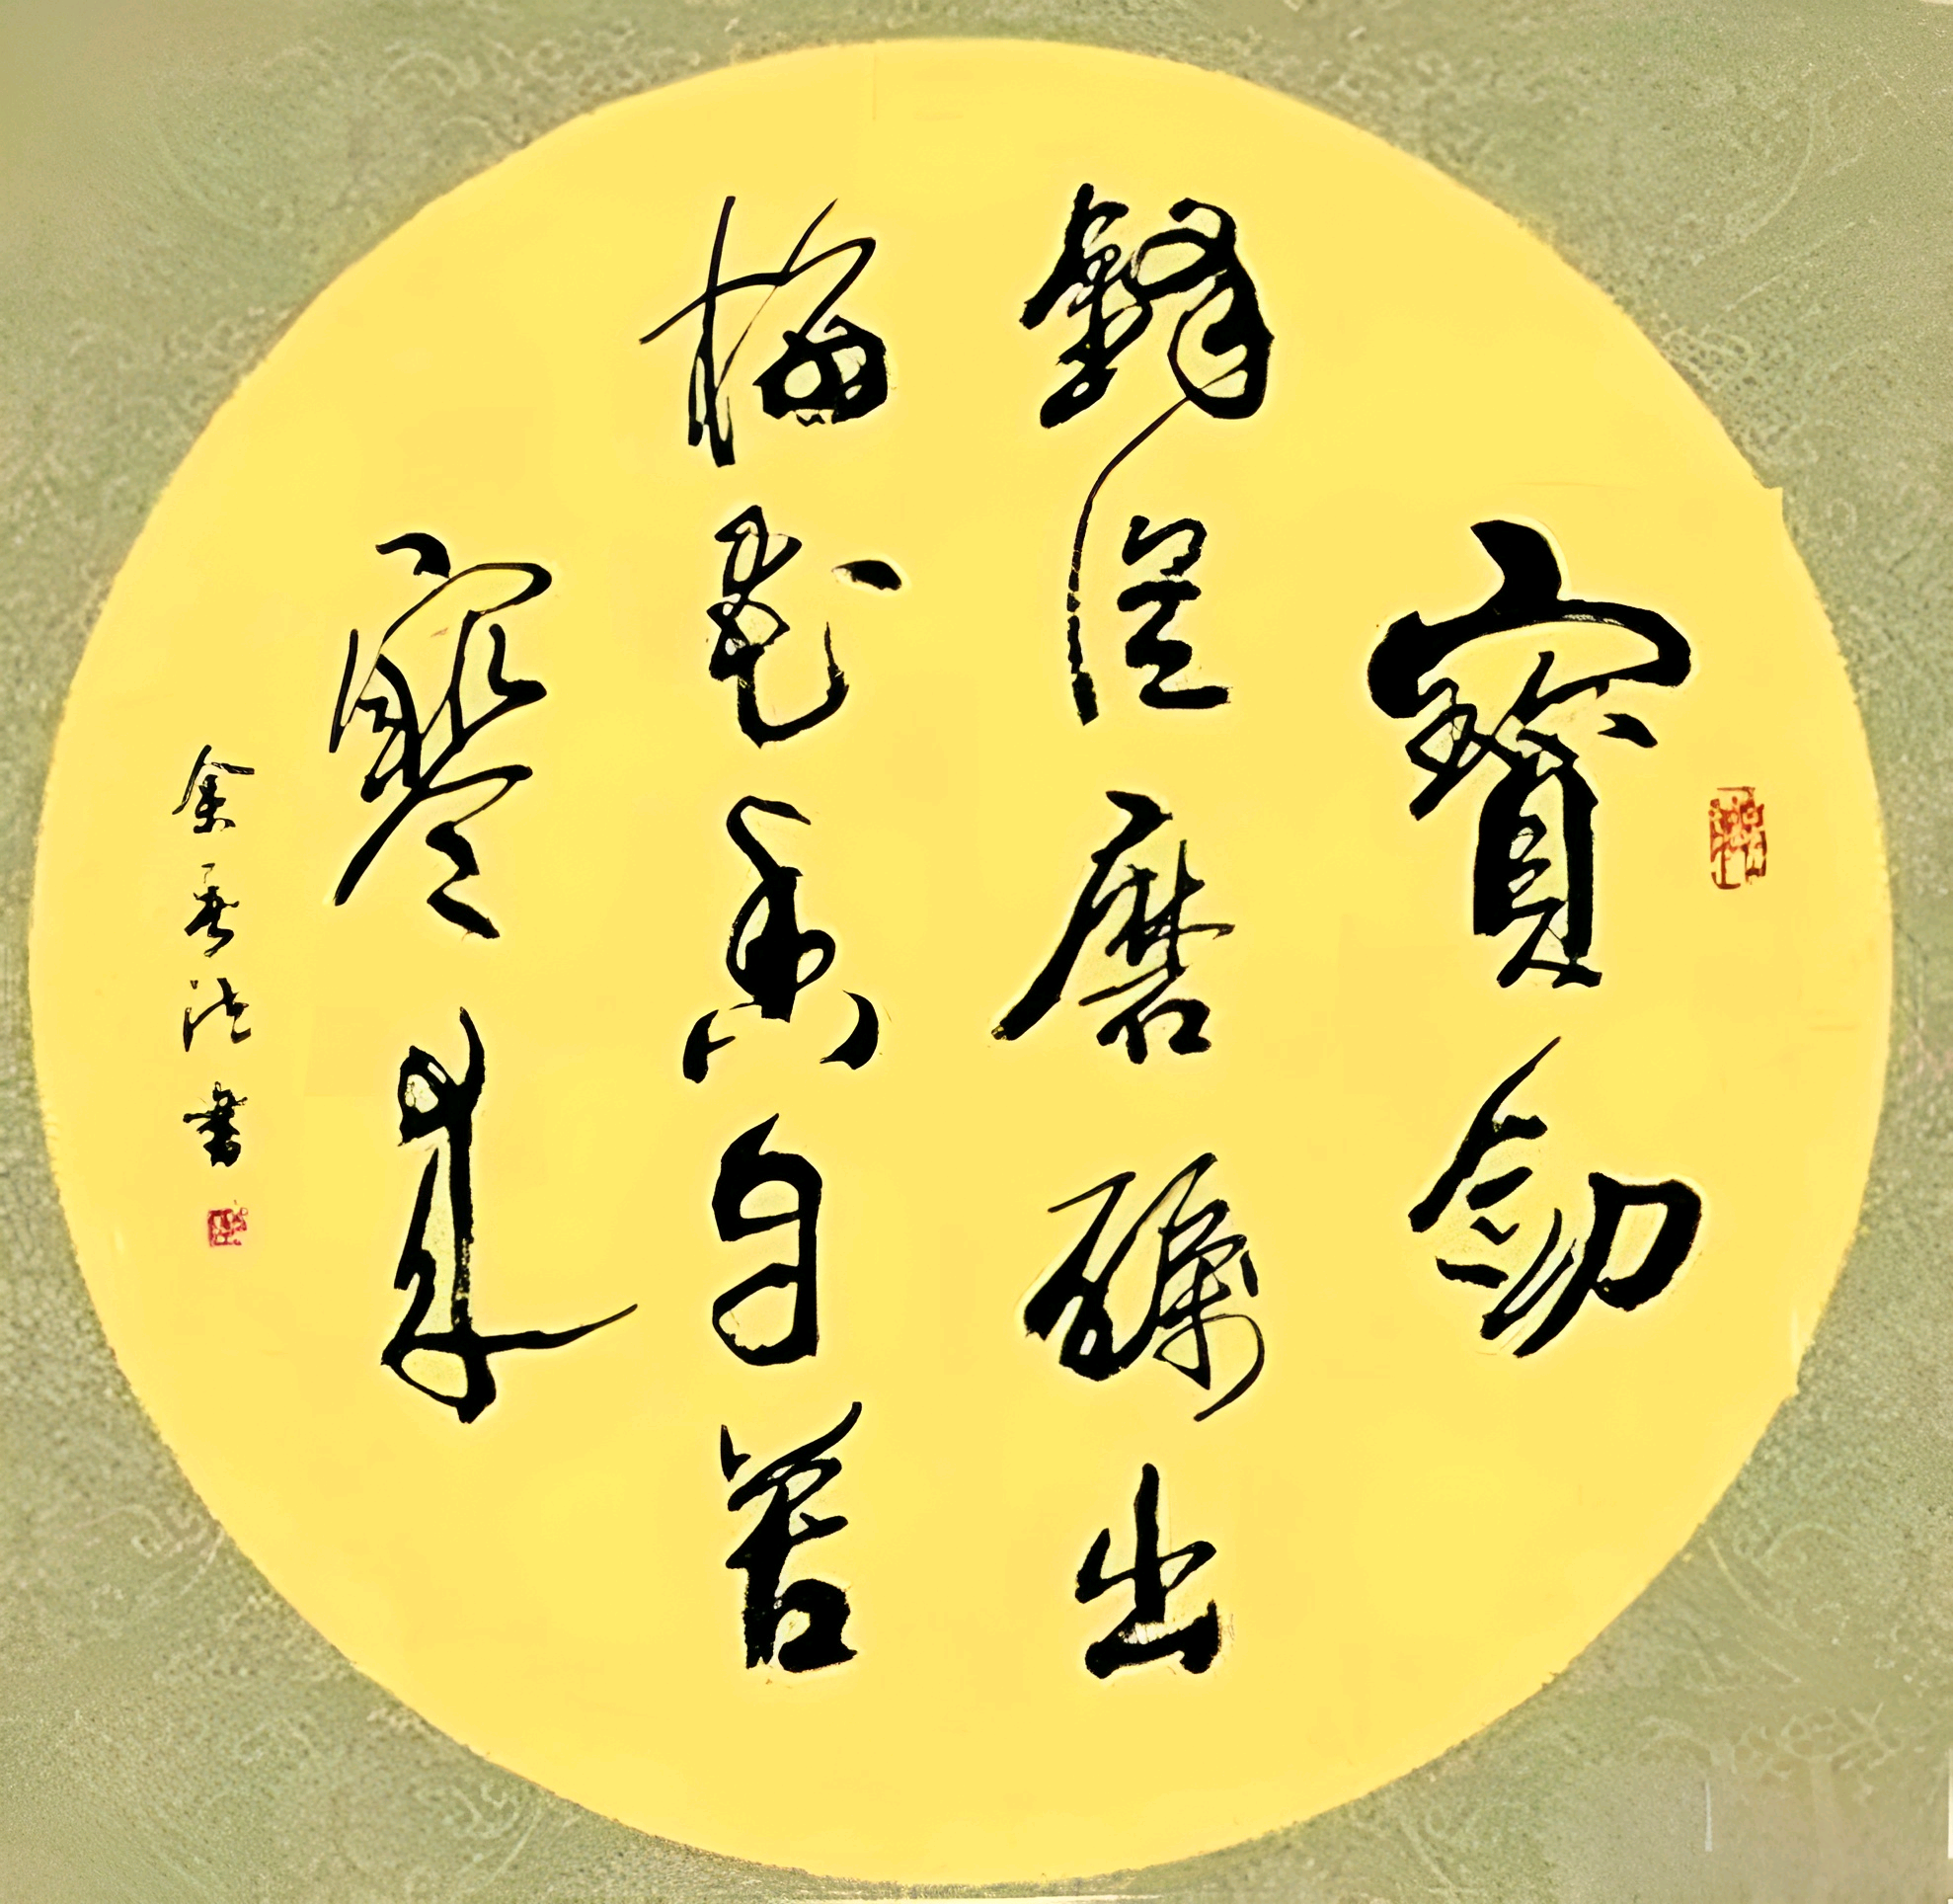 寶劍
鋒從磨礪出
梅花香自苦
寒來
書